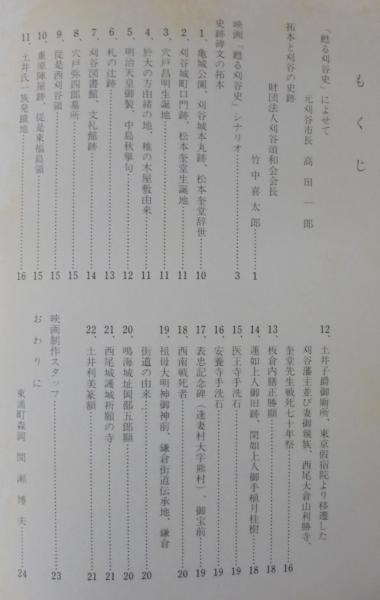 もくじ
「甦る刈谷史」によせて
元刈谷市長 高田一郎
拓本と刈谷の史跡
財団法人刈谷頌和会会長
竹中喜太郎………1
映画「甦る刈谷史」シナリオ………3
史跡碑文の拓本
1、亀城公園、刈谷城本丸跡、松本奎堂辞世………10
2、刈谷城町口門跡、松本奎堂生誕地………11
3、宍戸昌明生誕地………11
4、於大の方由緒の地、椎の木屋敷由来………11
5、明治天皇御製、中島秋挙句………12
6、札の辻跡………13
7、刈谷図書館、文礼館跡………14
8、宍戸弥四郎墓所………15
9、従是西刈谷領………15
10、重原陣屋跡、従是東福島領………15
11、土井氏一族発願地………16
12、土井子爵御廟所、東京假宿院より移遷した
刈谷藩主並び妻御親族、西尾大倉山利勝寺、
奎堂先生戦死七十年祭………16
13、板倉内膳正勝顕………18
14、蓮如上人御旧跡、聞如上人御手植月桂樹………18
15、医王寺手洗石………19
16、安養寺手洗石………19
17、表忠記念碑（逢妻村大字熊村）、御宝前………19
18、西南戦死者………20
19、祖母大明神御神前、鎌倉街道伝承地、鎌倉
街道の由来………20
20、鳴海城址岡部五郎顕………20
21、西尾城護城祈願の寺………21
22、土井利美篆額………21
映画制作スタッフ………23
おわりに
東浦町森岡 間瀬博夫………24